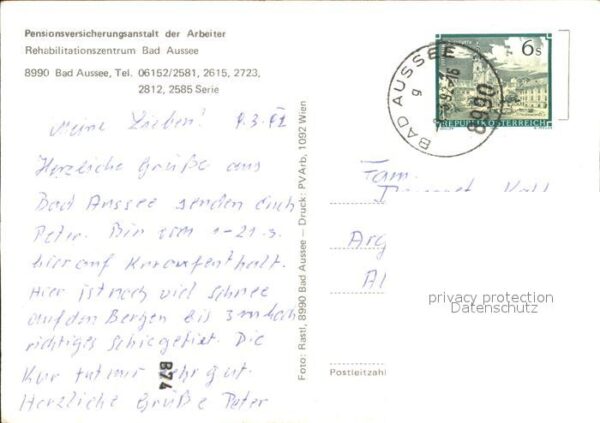 Pensionsversicherungsanstalt der Arbeiter
Rehabilitationszentrum Bad Aussee
8990 Bad Aussee, Tel. 06152/2581, 2615, 2723,
2812, 2585 Serie
Meine Lieben! 9.3.92
Herzliche Grüße aus
Bad Aussee senden Euch
Peter. Bin vom 1-21.3.
hier auf Kuraufenthalt.
Hier ist noch viel Schnee
auf den Bergen bis 3m hoch
richtiges Schigebiet. Die
Kur tut mir sehr gut.
Herzliche Grüße Peter
B74
Foto: Rastl, 8990 Bad Aussee – Druck: PVArb, 1092 Wien
6s
REPUBLIK ÖSTERREICH
BAD AUSSEE
8990
g
Fam.
Arg
Postleitzahl
privacy protection
Datenschutz